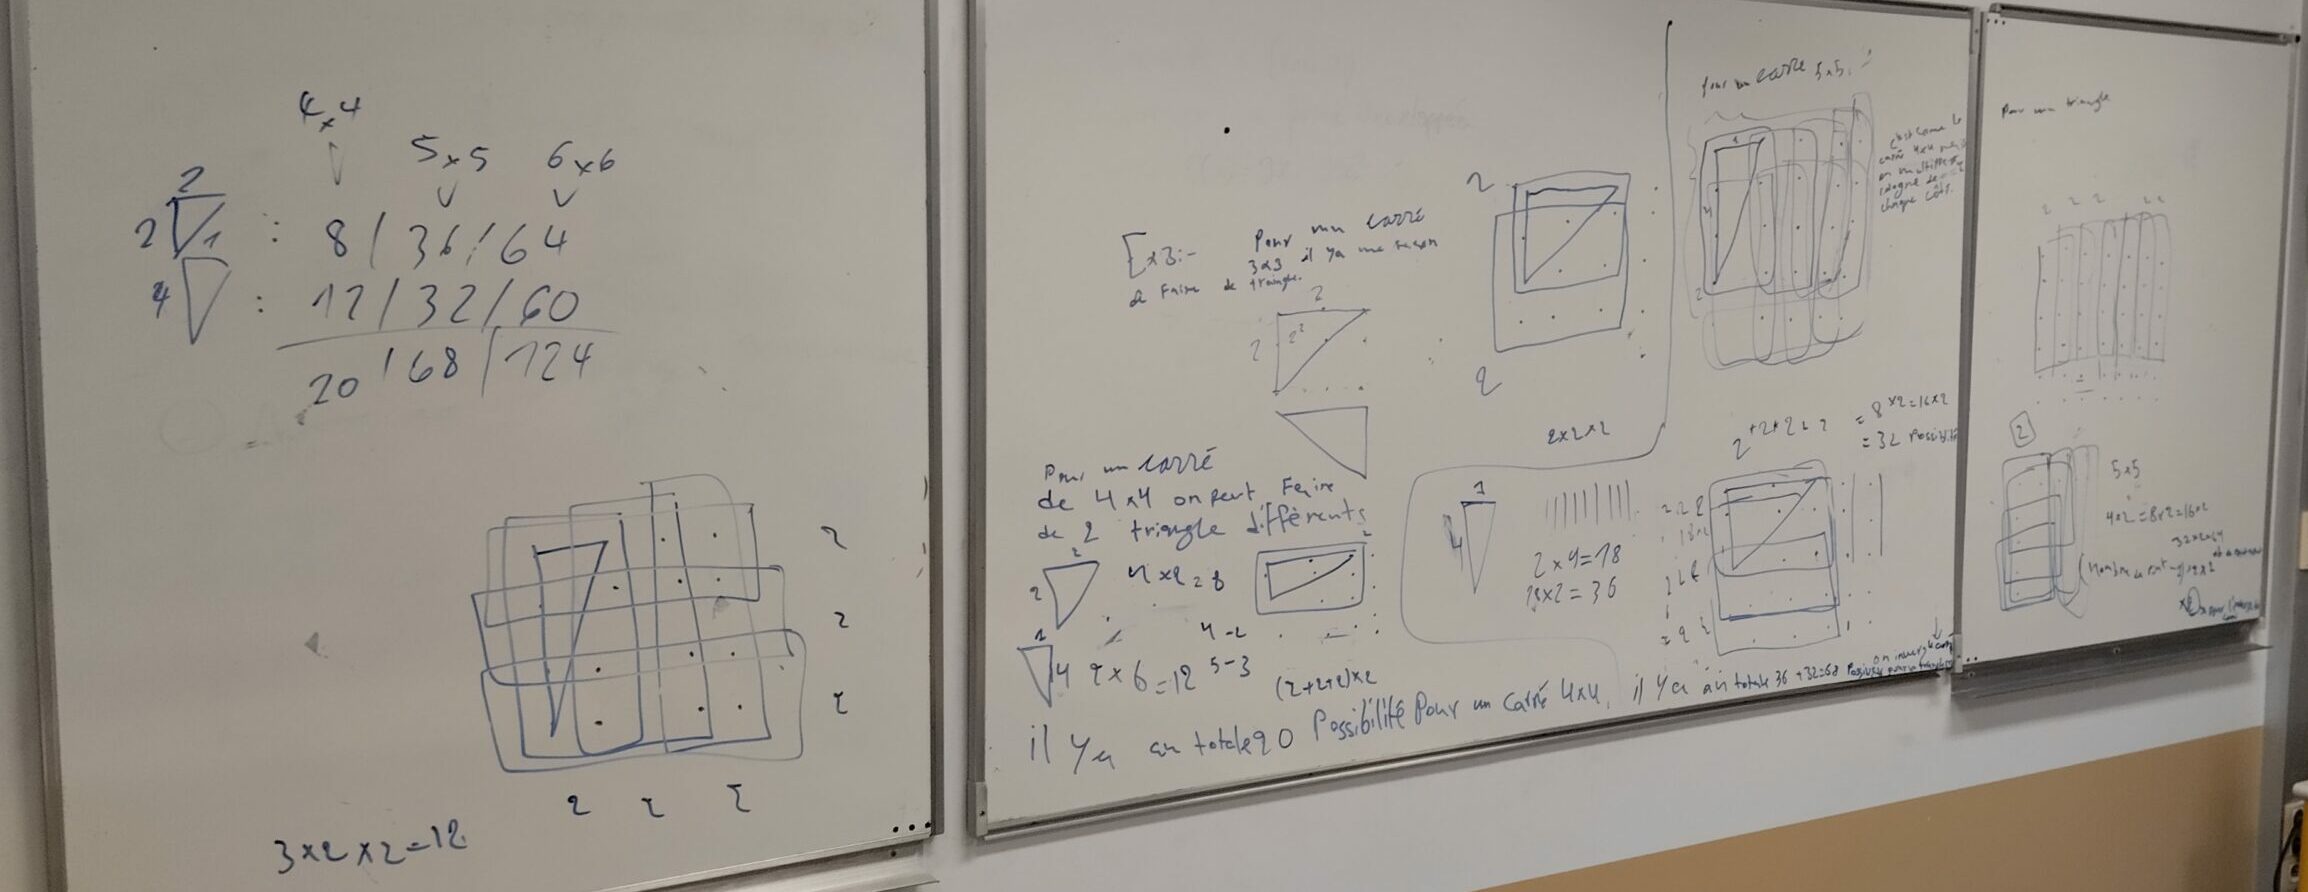 4x4
5x5 6x6
2
2 1 : 8 / 36 / 64
4 : 12 / 32 / 60
20 / 68 / 124
2
2
2
2 2 2
3x2x2=12
Ex3:- Pour un carré
3x3 il ya une façon
de Faire de triangle.
2
2 2²
2
2
2x2x2
Pour un carré
de 4x4 on peut Faire
de 2 triangle différents
2
2 4x2=8
4-2
1
4 2x6=12 5-3 (2+2+2)x2
il ya au totale 20 Possibilité Pour un carré 4x4.
1
4
2x9=18
18x2=36
Pour un carré 5x5
c'est comme le
carré 4x4 mais
on multiplie
chaque côté.
2+2+2+2 = 8x2=16x2
= 32 Possibilité
il ya au totale 36+32=68
Pour un triangle
2 2 2 2 2
2
5x5
4x2=8x2=16x2
32x2=64